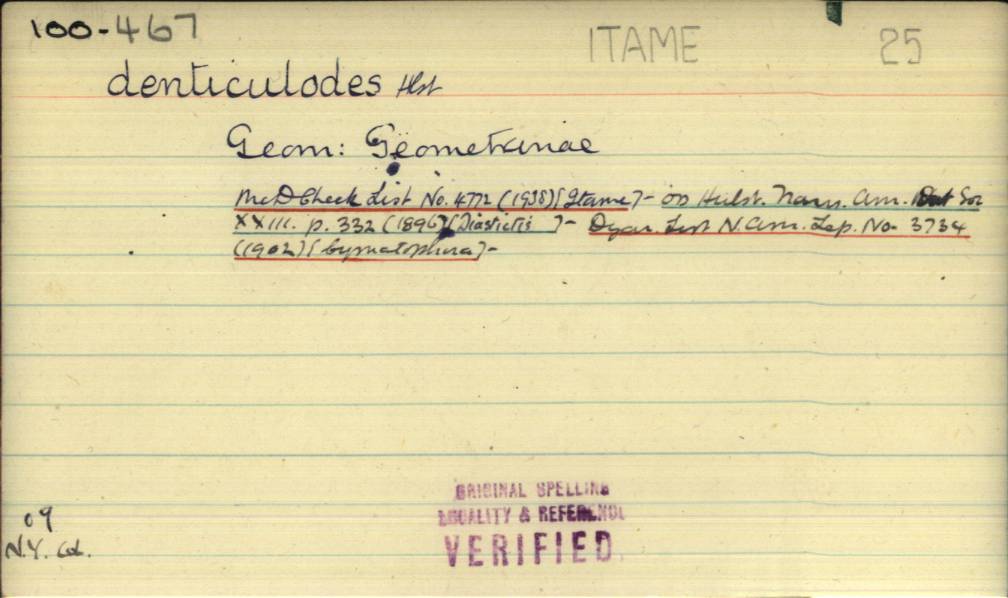 100-467
ITAME 25
denticulodes Hlst
Geom: Geometrinae
McD Check List No. 4772 (1938)[Itame]- OD Hulst. Trans. Am. Ent Soc
XXIII. p. 332 (1896)[Diastictis]- Dyar List N. Am. Lep. No. 3734
(1902)[Cymatophora]-
ORIGINAL SPELLING
LOCALITY & REFERENCE
VERIFIED.
09
N.Y. Col.